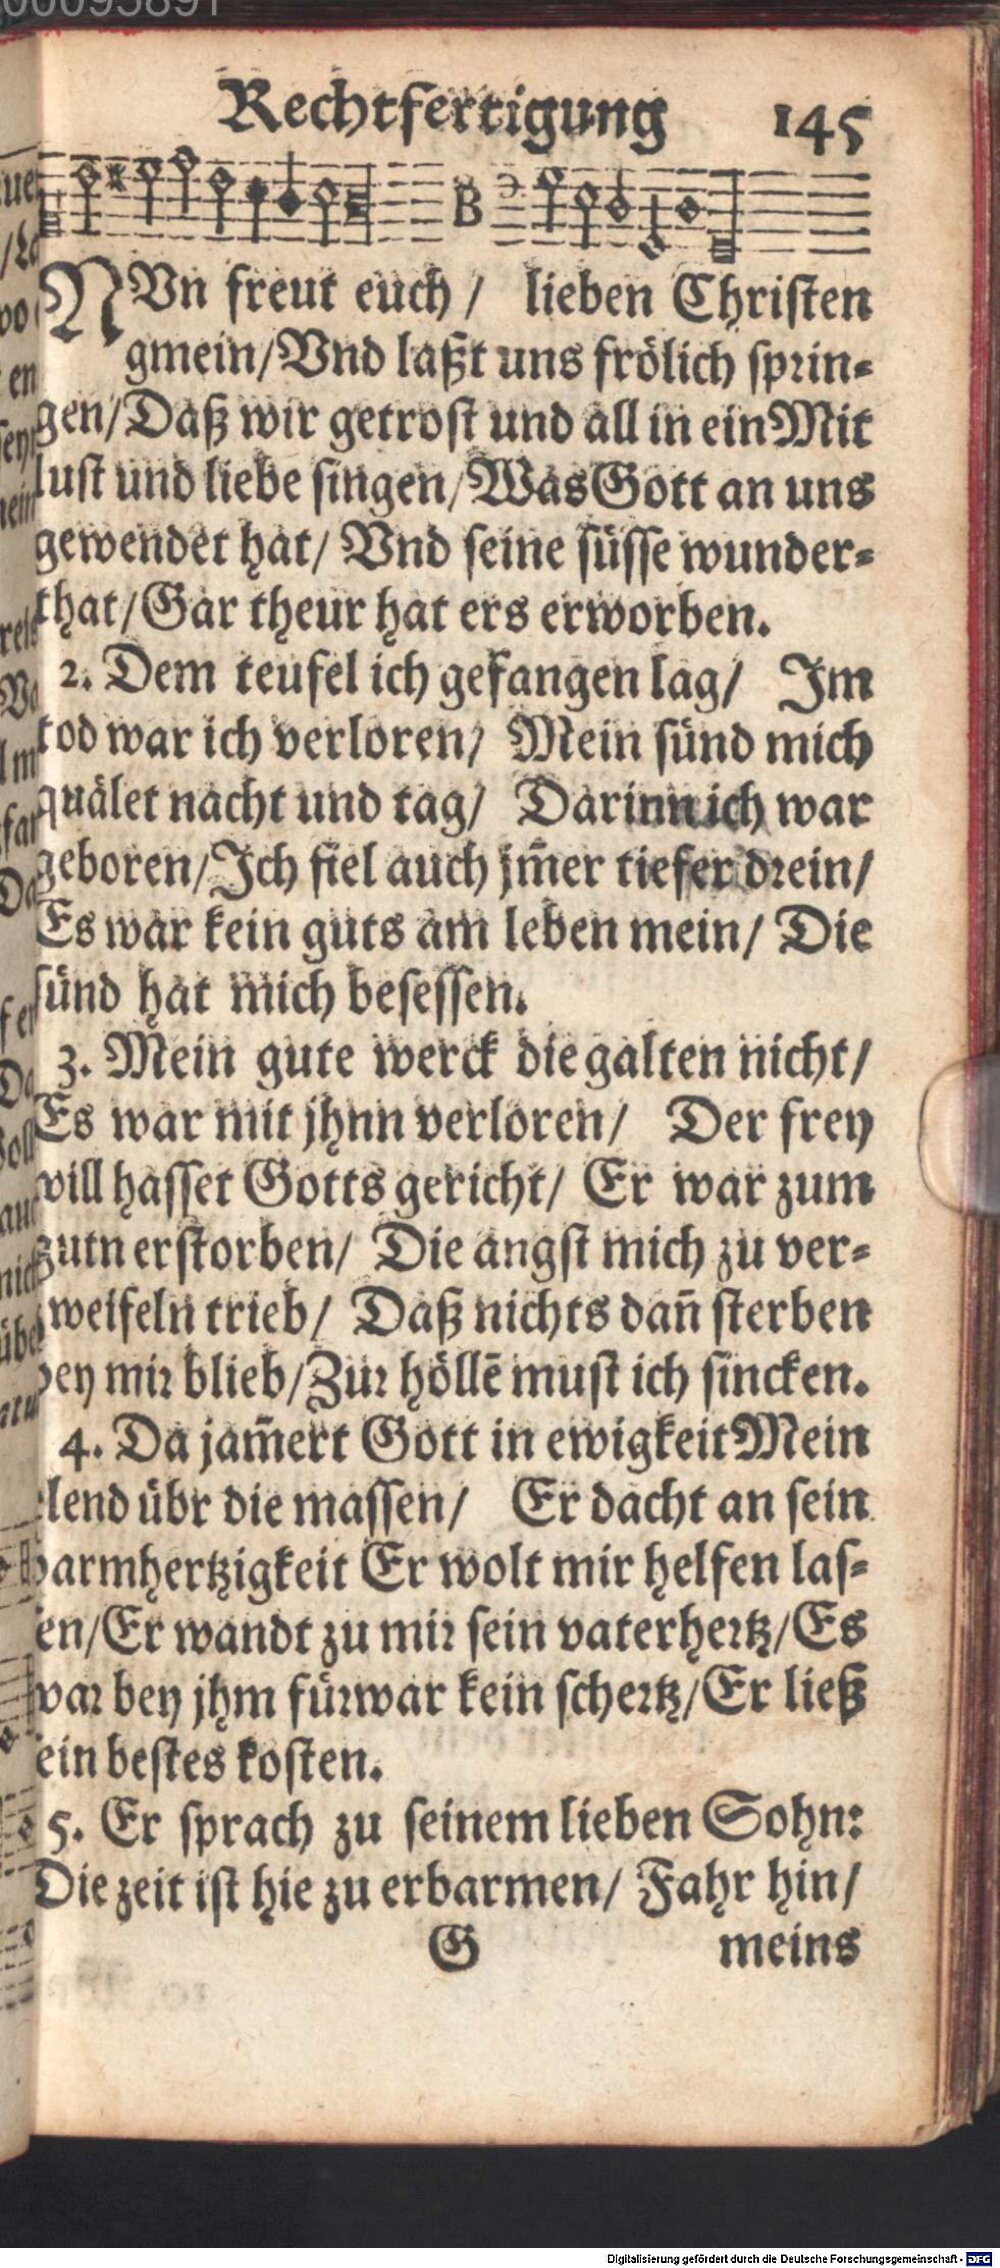 Rechtfertigung 145
B
NVn freut euch / lieben Christen
gmein/Vnd laßt uns frölich sprin-
gen/Daß wir getrost und all in ein Mit
lust und liebe singen/Was Gott an uns
gewendet hat/ Vnd seine süsse wunder-
that/Gar theur hat ers erworben.
2. Dem teufel ich gefangen lag/ Im
tod war ich verloren/ Mein sünd mich
quälet nacht und tag/ Darinn ich war
geboren/Ich fiel auch jm̄er tiefer drein/
Es war kein guts am leben mein/ Die
sünd hat mich besessen.
3. Mein gute werck die galten nicht/
Es war mit jhnn verloren/ Der frey
will hasset Gotts gericht/ Er war zum
gutn erstorben/ Die angst mich zu ver-
weifeln trieb/ Daß nichts dañ sterben
bey mir blieb/Zur höllē must ich sincken.
4. Da jam̄ert Gott in ewigkeit Mein
elend übr die massen/ Er dacht an sein
barmhertzigkeit Er wolt mir helfen las-
sen/Er wandt zu mir sein vaterhertz/Es
war bey jhm fürwar kein schertz/Er ließ
sein bestes kosten.
5. Er sprach zu seinem lieben Sohn:
Die zeit ist hie zu erbarmen/ Fahr hin/
G meins
Digitalisierung gefördert durch die Deutsche Forschungsgemeinschaft - DFG